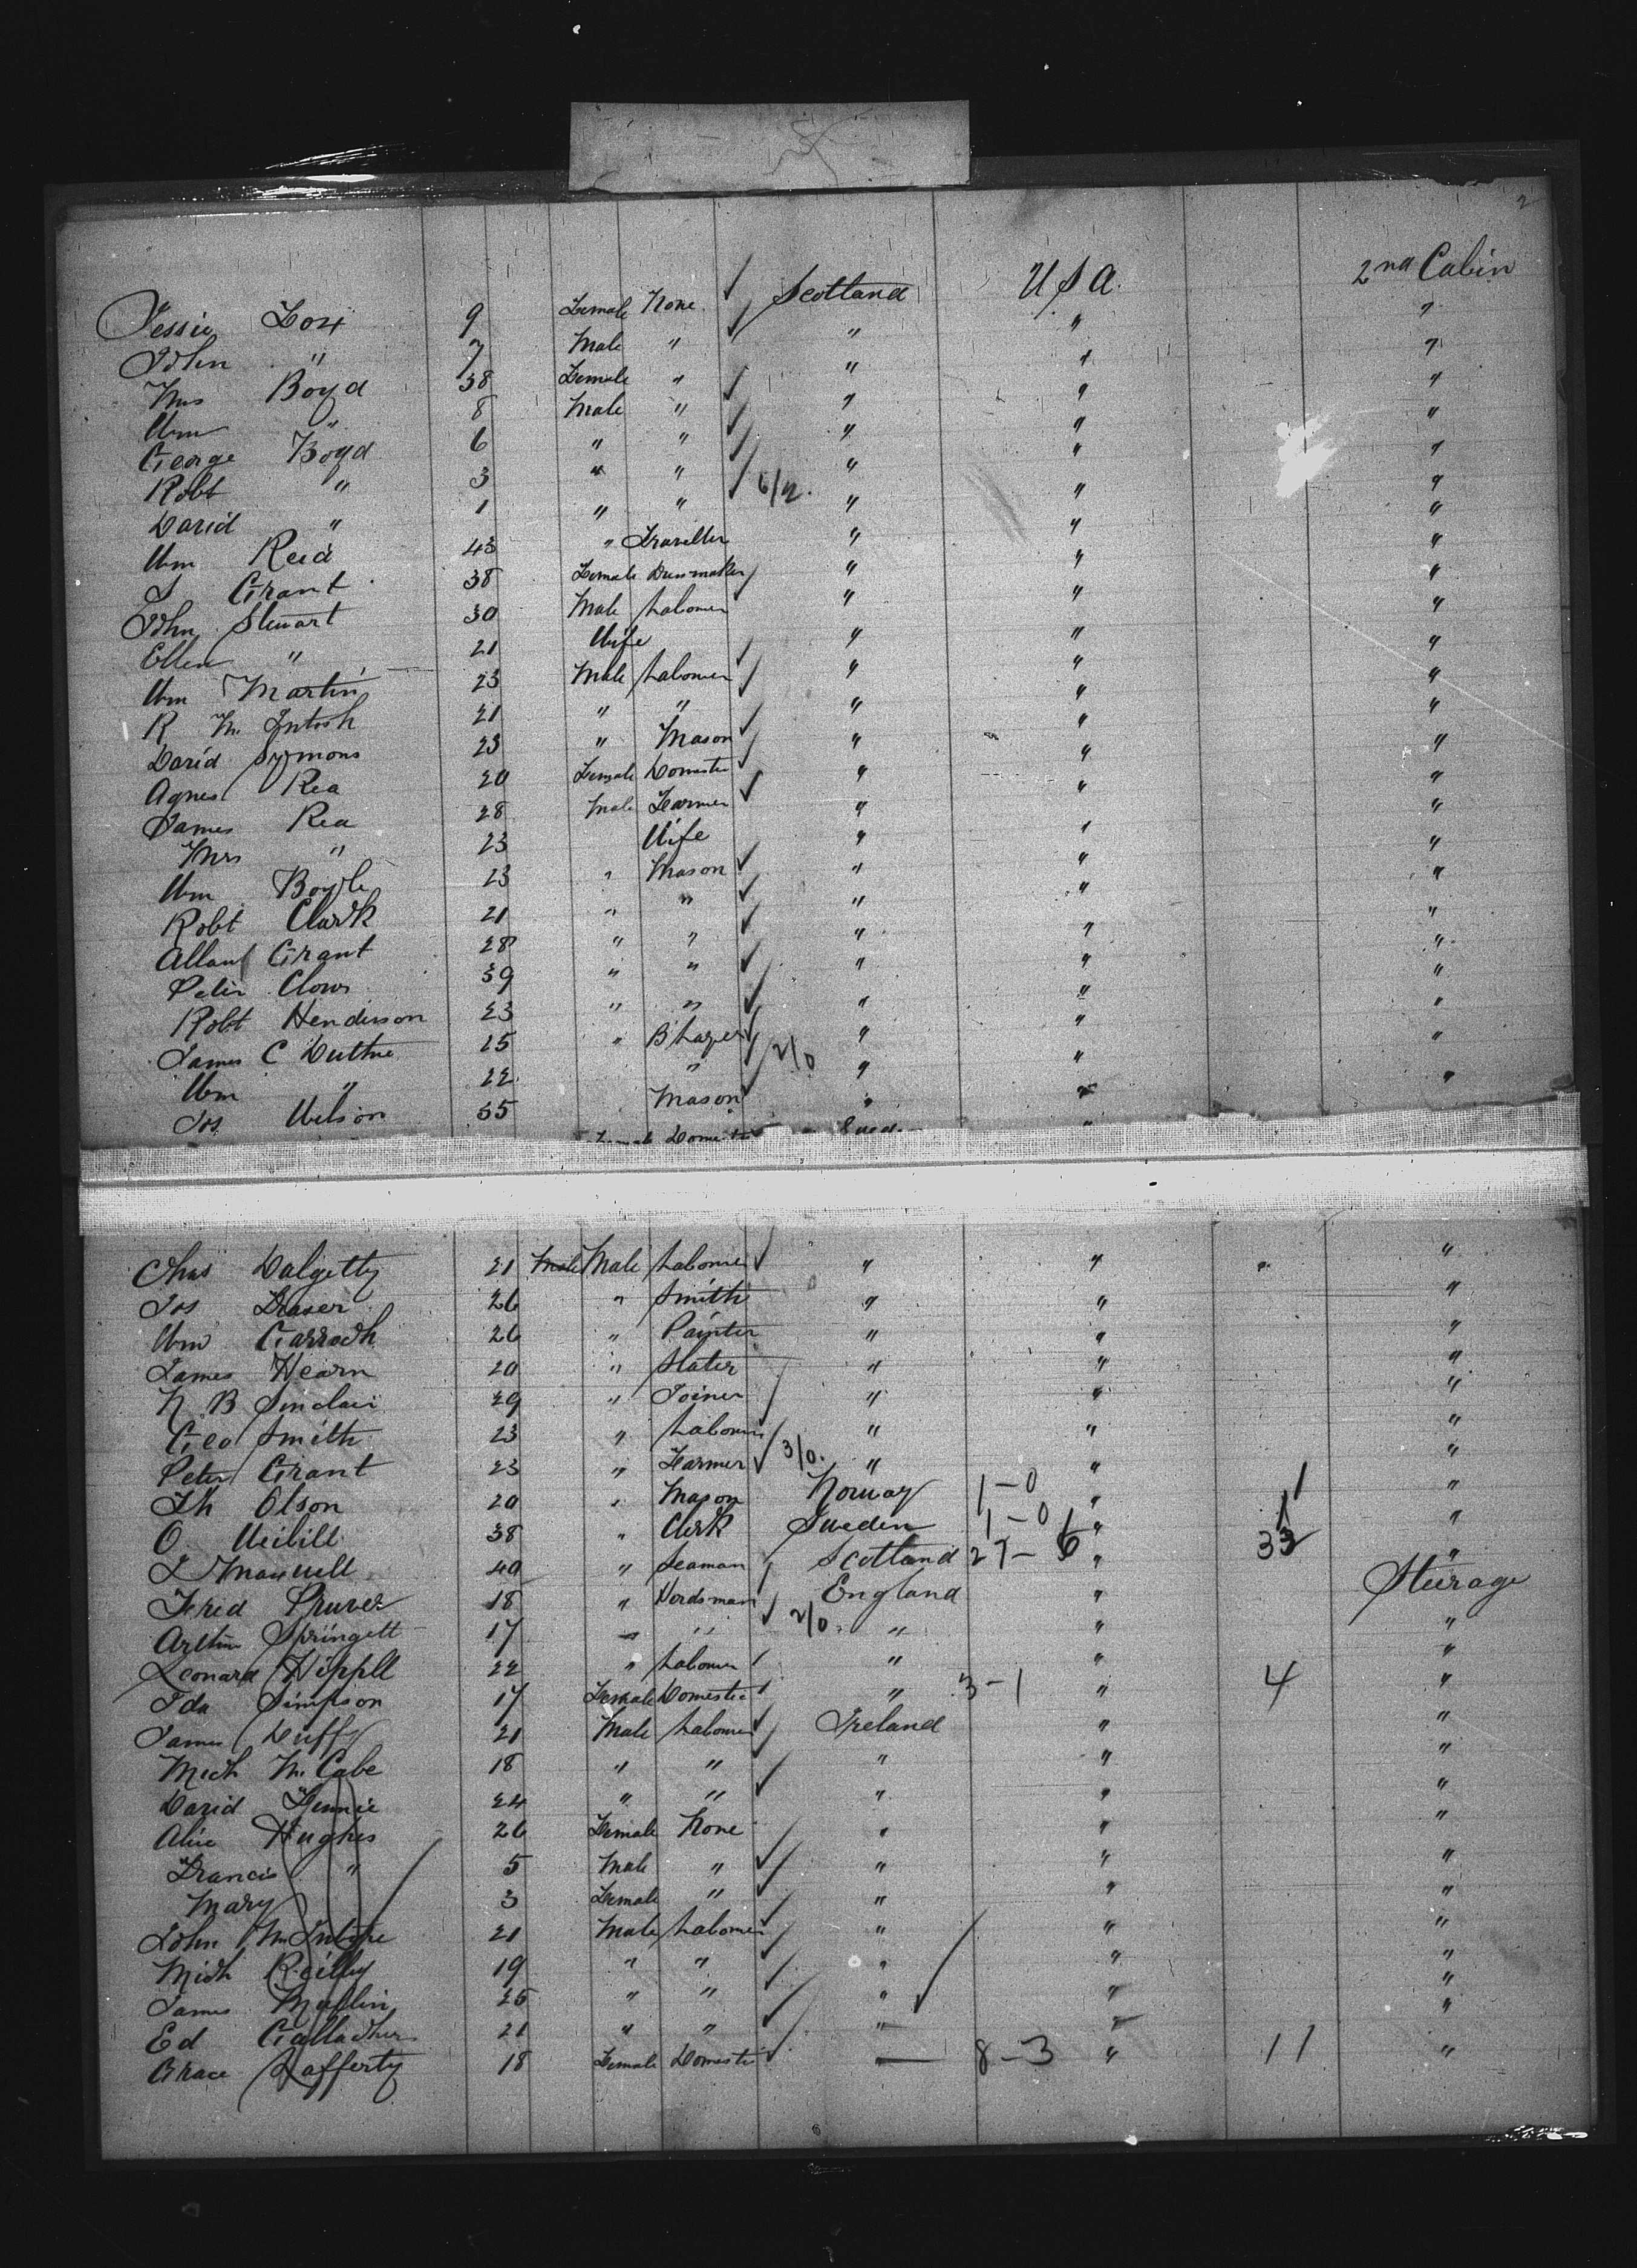 2
Jessie Fox 9 Female None Scotland U S A. 2nd Cabin
John " 7 Male " " " "
Mrs Boyd 38 Female " " " "
Wm " 8 Male " " " "
George Boyd 6 " " " " "
Robt " 3 " " " " "
David " 1 " " 6/2. " " "
Wm Reid 43 " Traveller " " "
Grant 38 Female Dressmaker " " "
John Stewart 30 Male Labourer " " "
Ellen " 21 Wife " " "
Wm Martin 23 Male Labourer " " "
R Mc Intosh 21 " " " " "
David Symons 23 " Mason " " "
Agnes Rea 20 Female Domestic " " "
James Rea 28 Male Farmer " " "
Mrs " 23 Wife " " "
Wm Boyle 23 " Mason " " "
Robt Clark 21 " " " " "
Allan Grant 28 " " " " "
Peter Clows 39 " " " " "
Robt Henderson 23 " " " " "
James C Duthie 25 " B Layer " " "
Wm " 22 " 2/0 " " "
Jos Wilson 35 Mason " " "
Female Domestic Swed "
Chas Dalgetty 21 Male Male Labourer " " "
Jos Fraser 26 " Smith " " "
Wm Garroch 26 " Painter " " "
James Hearn 20 " Slater " " "
N B Sinclair 29 " Joiner " " "
Geo Smith 23 " Labourer " " "
Peter Grant 23 " Farmer 3/0. " " "
Th Olson 20 " Mason Norway 1-0 " 1 "
O 38 " Clerk Sweden 1-0 " 1 "
Maxwell 40 " Seaman Scotland 27-6 " 33 "
Fred 18 " Herdsman England " Steerage
Arthur Springett 17 " " 2/0. " " "
Leonard 22 " Labourer " " "
Ida Simpson 17 Female Domestic " 3-1 " 4 "
James Duffy 21 Male Labourer Ireland " "
Mich Mc Cabe 18 " " " " "
David 24 " " " " "
Alice Hughes 26 Female None " " "
Francis " 5 Male " " " "
Mary 3 Female " " " "
John Mc Intyre 21 Male Labourer " " "
Mich Reilley 19 " " " " "
James 25 " " " " "
Ed Gallacher 21 " " " " "
Grace Lafferty 18 Female Domestic — 8-3 " 11 "